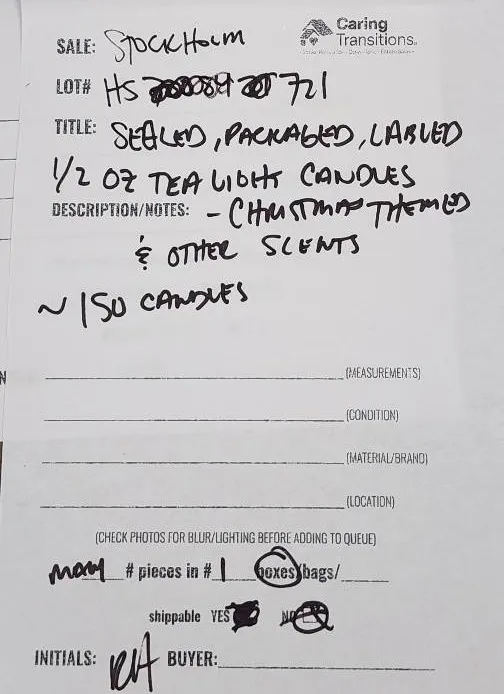 SALE: STOCKHOLM
Caring
Transitions.
LOT# HS 721
TITLE: SEALED, PACKAGED, LABLED
1/2 OZ TEA LIGHT CANDLES
DESCRIPTION/NOTES: - CHRISTMAS THEMED
& OTHER SCENTS
~ 150 CANDLES
(MEASUREMENTS)
(CONDITION)
(MATERIAL/BRAND)
(LOCATION)
(CHECK PHOTOS FOR BLUR/LIGHTING BEFORE ADDING TO QUEUE)
many # pieces in # 1 boxes/bags/
shippable YES NO
INITIALS: RH BUYER: